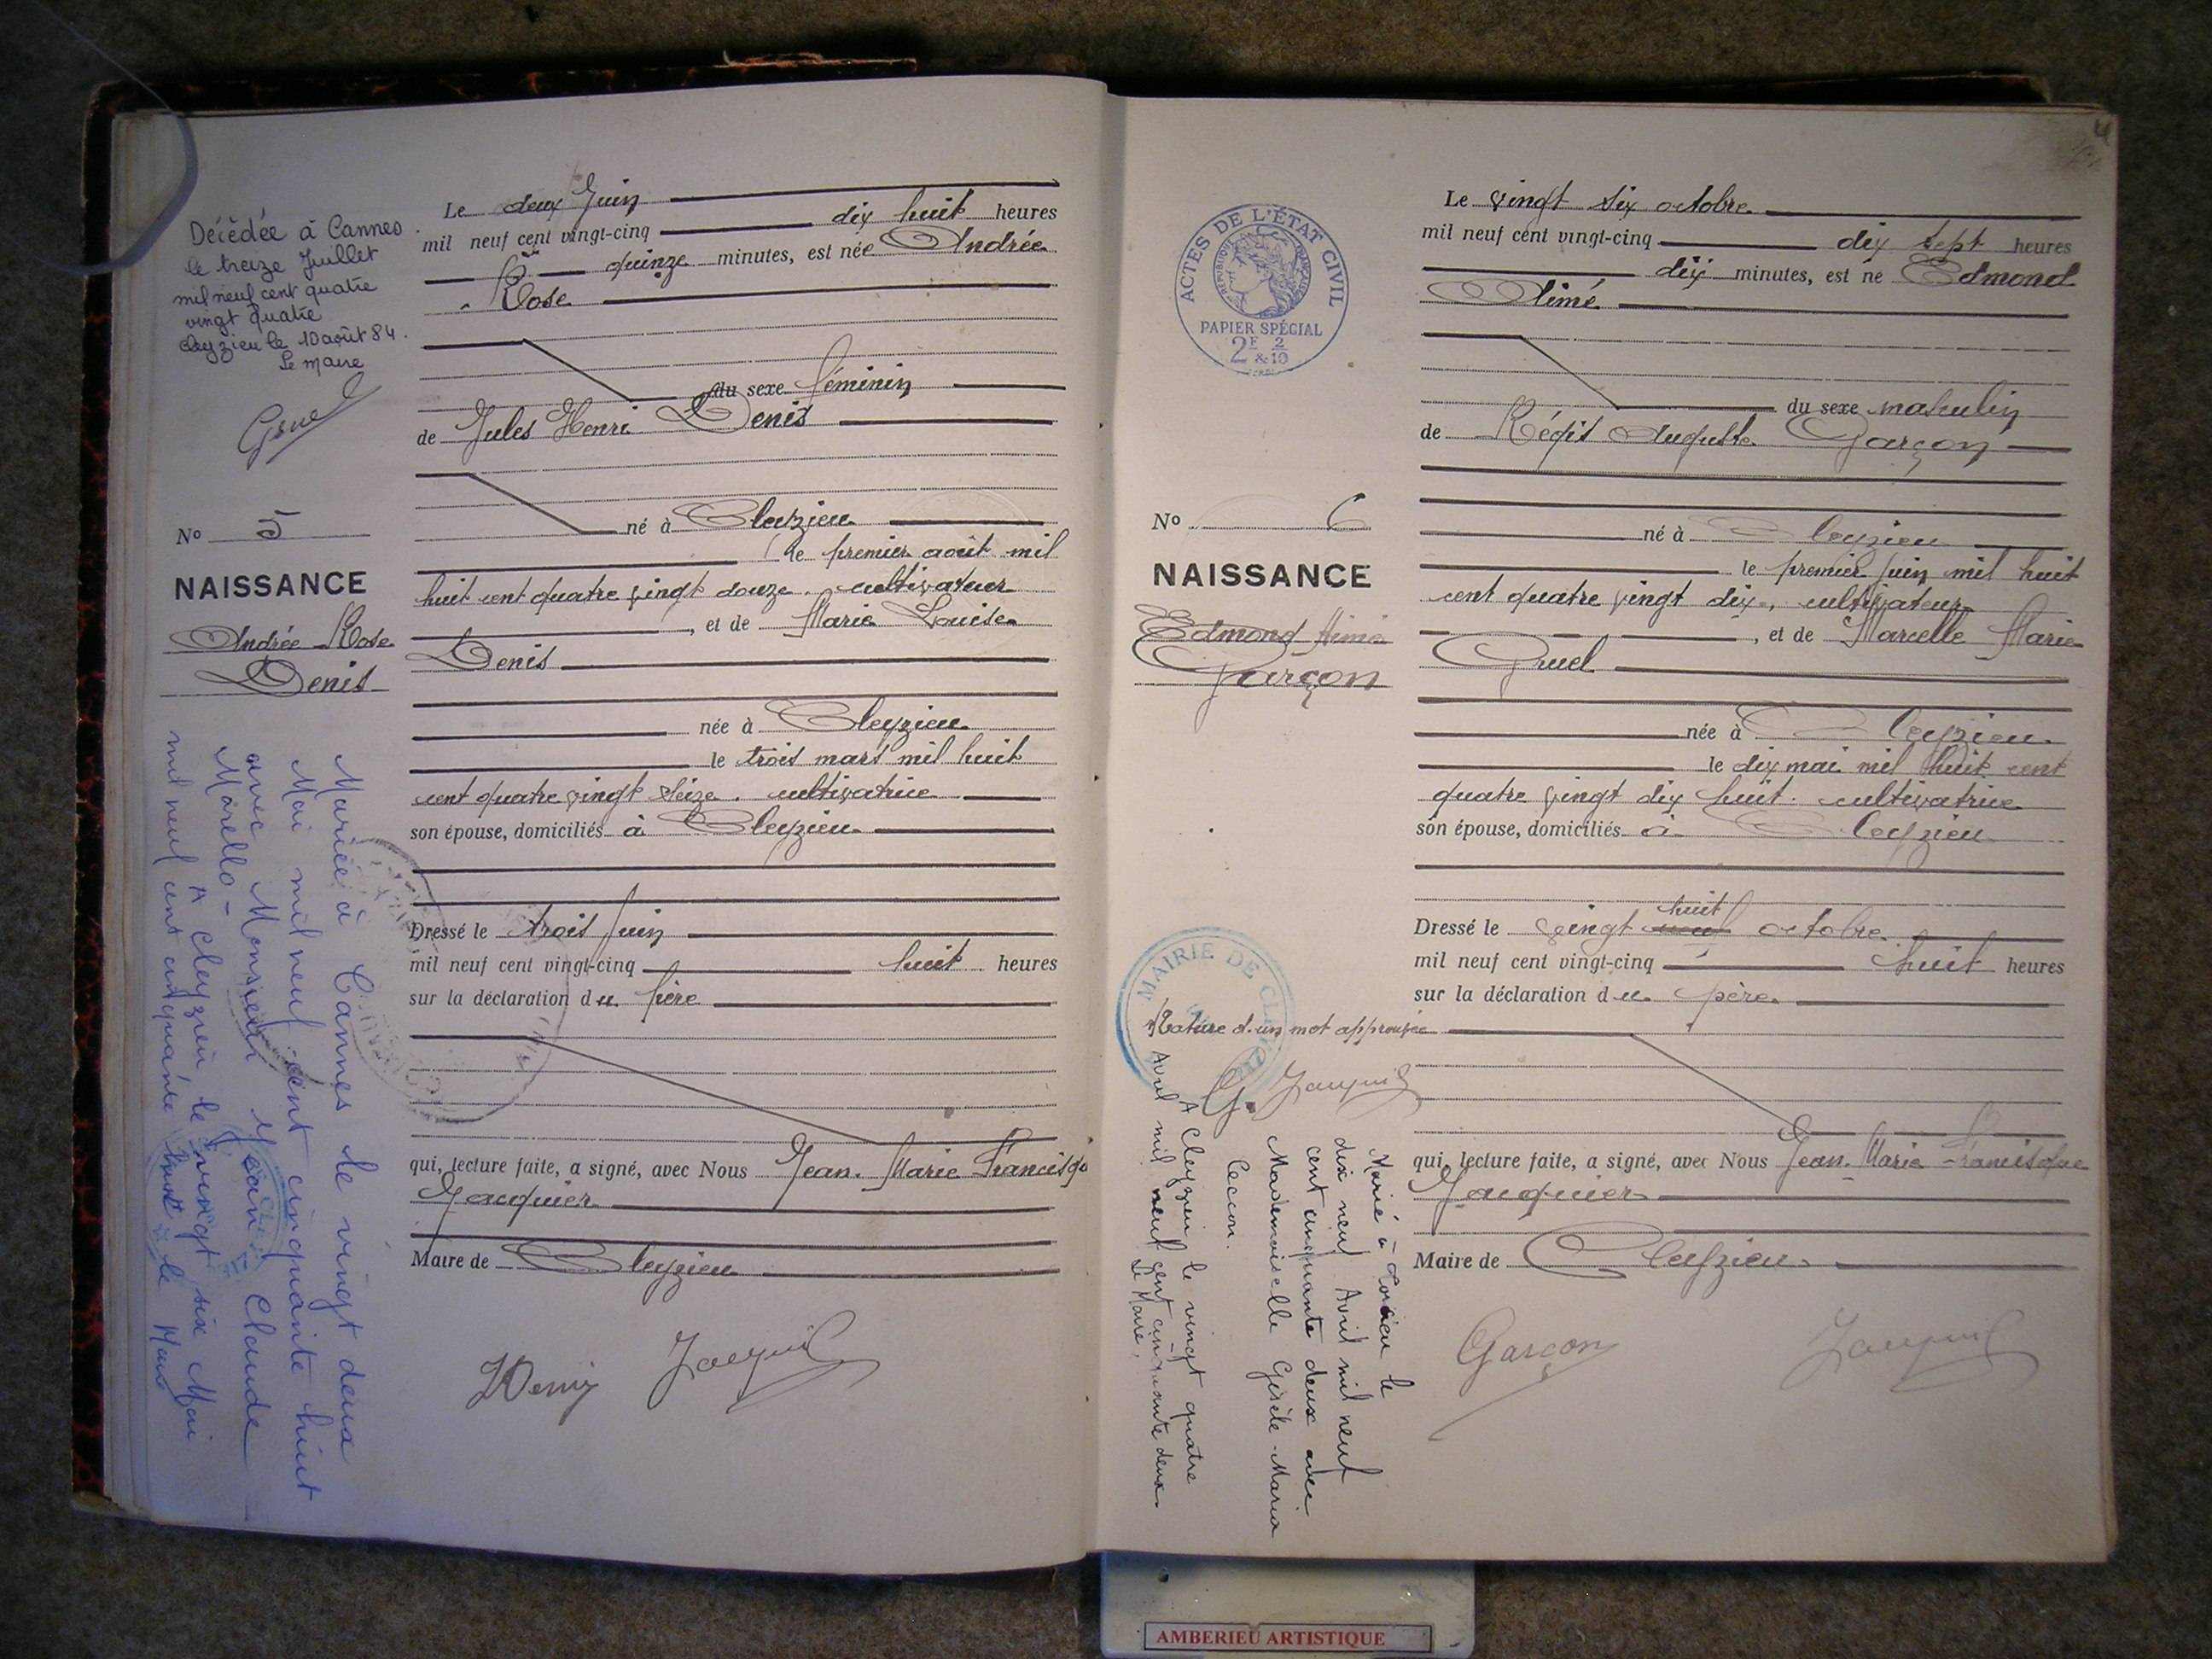 Décédée à Cannes
le treize Juillet
mil neuf cent quatre
vingt quatre
Cleyzieu le 10 août 84.
Le Maire
Gruel
No 5
NAISSANCE
Andrée Rose
Denis
Mariée à Cannes le vingt deux
Mai mil neuf cent cinquante huit
avec Monsieur Jean Claude
Morello -
A Cleyzieu, le vingt six Mai
mil neuf cent cinquante huit le Maire
Le deux Juin
mil neuf cent vingt-cinq dix huit heures
quinze minutes, est née Andrée
Rose
du sexe féminin
de Jules Henri Denis
né à Cleyzieu
le premier août mil
huit cent quatre vingt douze. cultivateur
, et de Marie Louise
Denis
née à Cleyzieu
le trois mars mil huit
cent quatre vingt seize. cultivatrice
son épouse, domiciliés à Cleyzieu
Dressé le trois Juin
mil neuf cent vingt-cinq huit heures
sur la déclaration du père
qui, lecture faite, a signé, avec Nous Jean-Marie Francisq
Jacquier
Maire de Cleyzieu
JDenis Jacquier
ACTES DE L'ÉTAT CIVIL
RÉPUBLIQUE FRANÇAISE
PAPIER SPÉCIAL
2F 2
&10
No 6
NAISSANCE
Edmond Aimé
Garçon
MAIRIE DE
Rature d'un mot approuvée
G. Jacquier
Marié à Torcieu le
dix neuf Avril mil neuf
cent cinquante deux avec
Mademoiselle Gisèle-Maria
Ceccon.
A Cleyzieu le vingt quatre
Avril mil neuf cent cinquante deux.
Le Maire,
Le vingt six octobre
mil neuf cent vingt-cinq dix sept heures
dix minutes, est né Edmond
Aimé
du sexe masculin
de Régis Auguste Garçon
né à Cleyzieu
le premier juin mil huit
cent quatre vingt dix, cultivateur
, et de Marcelle Marie
Gruel
née à Cleyzieu
le dix mai mil huit cent
quatre vingt dix huit. cultivatrice
son épouse, domiciliés à Cleyzieu
huit
Dressé le vingt neuf octobre
mil neuf cent vingt-cinq huit heures
sur la déclaration du père
qui, lecture faite, a signé, avec Nous Jean-Marie Francisque
Jacquier
Maire de Cleyzieu
Garçon Jacquier
AMBERIEU ARTISTIQUE